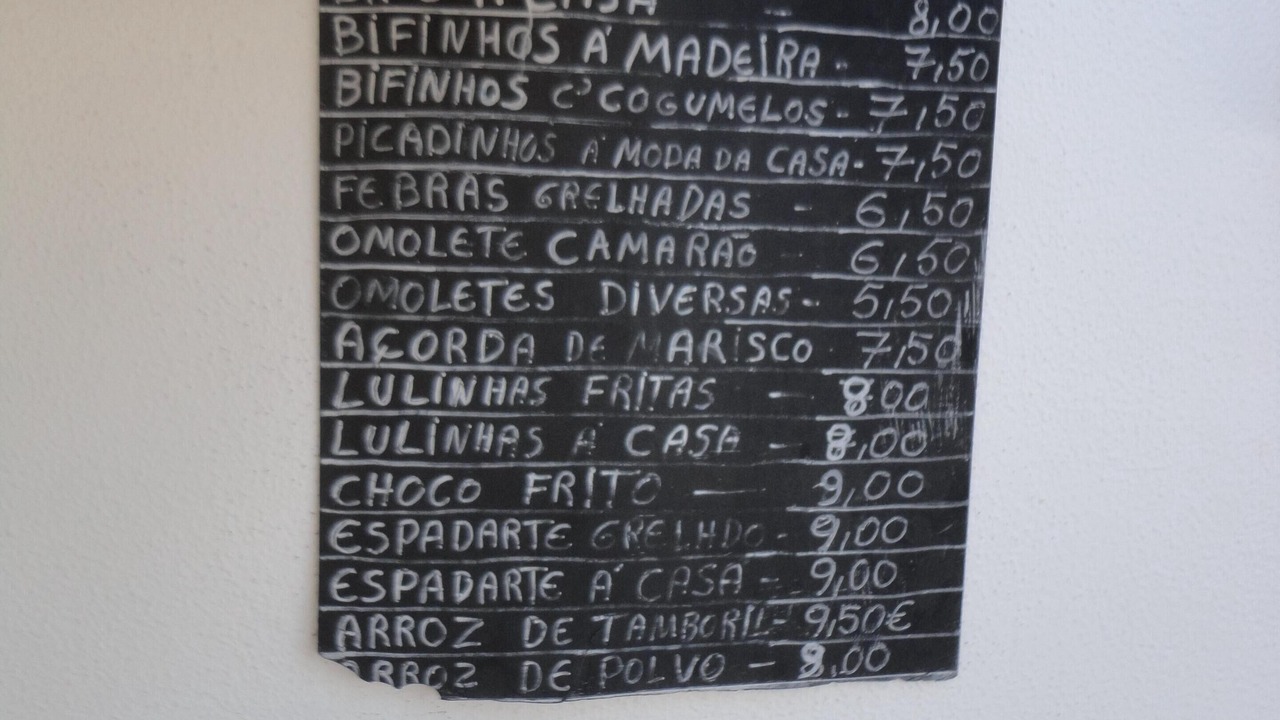 CASA 8,00
BIFINHOS Á MADEIRA - 7,50
BIFINHOS C/ COGUMELOS - 7,50
PICADINHOS Á MODA DA CASA - 7,50
FEBRAS GRELHADAS - 6,50
OMOLETE CAMARÃO - 6,50
OMOLETES DIVERSAS - 5,50
AÇORDA DE MARISCO 7,50
LULINHAS FRITAS - 8,00
LULINHAS Á CASA - 8,00
CHOCO FRITO — 9,00
ESPADARTE GRELHDO - 9,00
ESPADARTE Á CASA - 9,00
ARROZ DE TAMBORIL - 9,50€
ARROZ DE POLVO - 8,00